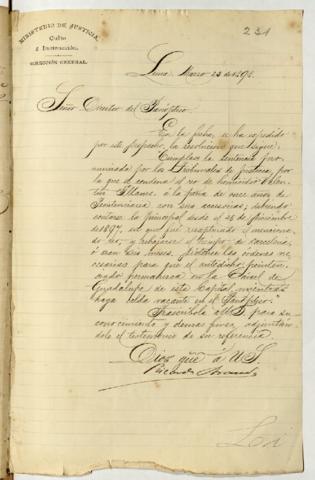 231
MINISTERIO DE JUSTICIA,
Culto
é Instrucción.
DIRECCIÓN GENERAL.
Lima, Marzo 23 de 189
Señor Director del Panóptico.
En la fecha, se ha expedido
por este despacho, la resolución que sigue:
"Cúmplase la sentencia pro-
nunciada por los Tribunales de justicia, por
la que se condena al reo de homicidio Valen-
tín Illanes á la pena de once años de
Penitenciaría con sus accesorias; debiendo
contarse la principal desde el 24 de
de 1897, en que fué recapturado el menciona-
do reo, y rebajarse el tiempo de carcelería,
ó sean seis meses. las órdenes ne-
cesarias para que el antedicho
ciado permanezca en la Cárcel de
Guadalupe de esta Capital, mientras
haya celda vacante en el Panóptico."
Trascríbola á US. para su
conocimiento y demás fines, adjuntán-
dole el testimonio de su referencia.
Dios gue. á U.S.
Ricardo